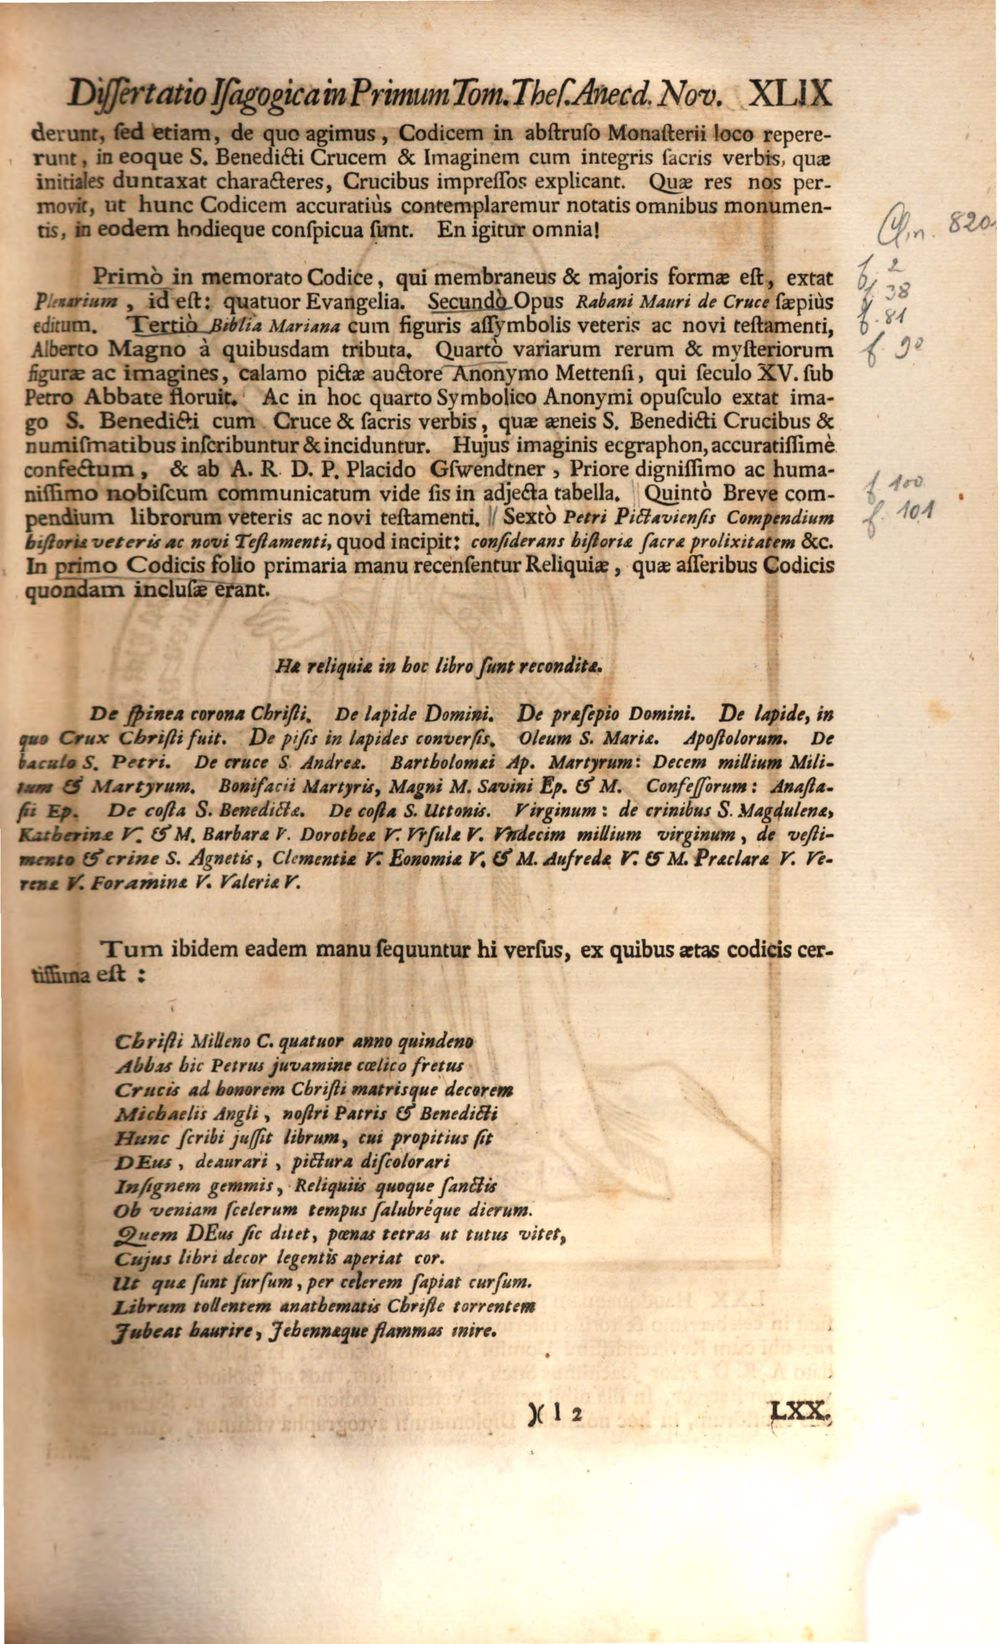 Dissertatio Isagogica in Primum Tom. Thes. Anecd. Nov. XLIX
derunt, sed etiam, de quo agimus, Codicem in abstruso Monasterii loco repere-
runt, in eoque S. Benedicti Crucem & Imaginem cum integris sacris verbis, quæ
initiales duntaxat characteres, Crucibus impressos explicant. Quæ res nos per-
movit, ut hunc Codicem accuratiùs contemplaremur notatis omnibus monumen-
tis, in eodem hodieque conspicua sunt. En igitur omnia!
Clm. 820
Primò in memorato Codice, qui membraneus & majoris formæ est, extat
f. 2
Plenarium, id est: quatuor Evangelia. Secundò Opus Rabani Mauri de Cruce sæpiùs
f. 38
editum. Tertiò Biblia Mariana cum figuris assymbolis veteris ac novi testamenti,
f. 81
Alberto Magno à quibusdam tributa. Quartò variarum rerum & mysteriorum
f. 90
figuræ ac imagines, calamo pictæ auctore Anonymo Mettensi, qui seculo XV. sub
Petro Abbate floruit. Ac in hoc quarto Symbolico Anonymi opusculo extat ima-
go S. Benedicti cum Cruce & sacris verbis, quæ æneis S. Benedicti Crucibus &
numismatibus inscribuntur & inciduntur. Hujus imaginis ecgraphon, accuratissimè
confectum, & ab A. R. D. P. Placido Gswendtner, Priore dignissimo ac huma-
nissimo nobiscum communicatum vide sis in adjecta tabella. Quintò Breve com-
f. 100
pendium librorum veteris ac novi testamenti. // Sextò Petri Pictaviensis Compendium
f. 101
historiæ veteris ac novi Testamenti, quod incipit: considerans historiæ sacræ prolixitatem &c.
In primo Codicis folio primaria manu recensentur Reliquiæ, quæ asseribus Codicis
quondam inclusæ erant.
Hæ reliquiæ in hoc libro sunt reconditæ.
De spinea corona Christi. De lapide Domini. De præsepio Domini. De lapide, in
quo Crux Christi fuit. De pisis in lapides conversis. Oleum S. Mariæ. Apostolorum. De
baculo S. Petri. De cruce S. Andreæ. Bartholomæi Ap. Martyrum: Decem millium Mili-
tum & Martyrum. Bonifacii Martyris, Magni M. Savini Ep. & M. Confessorum: Anasta-
sii Ep. De costa S. Benedictæ. De costa S. Uttonis. Virginum: de crinibus S. Magdulenæ,
Katherinæ V. & M. Barbaræ V. Dorotheæ V. Vrsulæ V. Vndecim millium virginum, de vesti-
mento & crine S. Agnetis, Clementiæ V. Eonomiæ V. & M. Aufredæ V. & M. Præclaræ V. Ve-
renæ V. Foraminæ V. Valeriæ V.
Tum ibidem eadem manu sequuntur hi versus, ex quibus ætas codicis cer-
tissima est:
Christi Milleno C. quatuor anno quindeno
Abbas hic Petrus juvamine cœlico fretus
Crucis ad honorem Christi matrisque decorem
Michaelis Angli, nostri Patris & Benedicti
Hunc scribi jussit librum, cui propitius sit
DEus, deaurari, pictura discolorari
Insignem gemmis, Reliquiis quoque sanctis
Ob veniam scelerum tempus salubréque dierum.
Quem DEus sic ditet, pœnas tetras ut tutus vitet,
Cujus libri decor legentis aperiat cor.
Ut quæ sunt sursum, per celerem sapiat cursum.
Librum tollentem anathematis Christe torrentem
Jubeat haurire, Jehennæque flammas inire.
)( l 2 LXX.